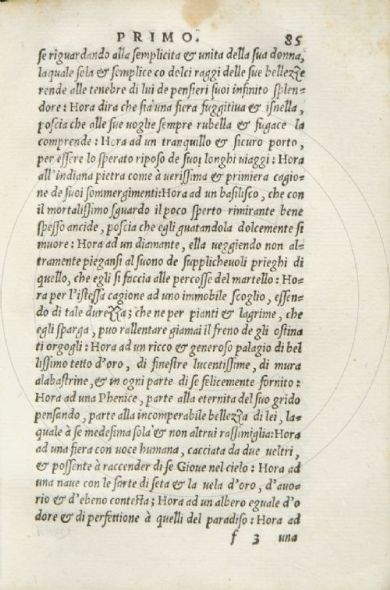 PRIMO. 85
se riguardando alla semplicita & unita della sua donna,
laquale sola & semplice co dolci raggi delle sue bellezze
rende alle tenebre di lui de pensieri suoi infinito splen-
dore: Hora dira che sia una fiera fuggitiva & isnella,
poscia che alle sue voghe sempre rubella & fugace la
comprende: Hora ad un tranquillo & sicuro porto,
per essere lo sperato riposo de suoi longhi uiaggi: Hora
all'indiana pietra come à uerissima & primiera cagio-
ne de suoi sommergimenti: Hora ad un basilisco, che con
il mortalissimo sguardo il poco sperto rimirante bene
spesso ancide, poscia che egli guatandola dolcemente si
muore: Hora ad un diamante, ella ueggiendo non al-
tramente piegansi al suono de supplicheuoli prieghi di
quello, che egli si faccia alle percosse del martello: Ho-
ra per l'istessa cagione ad uno immobile scoglio, essen-
do di tale durezza; che ne per pianti & lagrime, che
egli sparga, puo rallentare giamai il freno de gli ostina
ti orgogli: Hora ad un ricco & generoso palagio di bel
lissimo tetto d'oro, di finestre lucentissime, di mura
alabastrine, & in ogni parte di se felicemente fornito:
Hora ad una Phenice, parte alla eternita del suo grido
pensando, parte alla incomperabile bellezza di lei, la-
quale à se medesima sola & non altrui rassimiglia: Hora
ad una fiera con uoce humana, cacciata da due ueltri,
& possente à raccender di se Gioue nel cielo: Hora ad
una naue con le sarte di seta & la uela d'oro, d'auo-
rio & d'ebeno contesta; Hora ad un albero eguale d'o
dore & di perfettione à quelli del paradiso: Hora ad
f 3 una